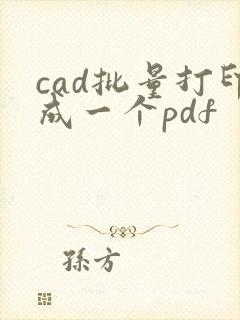 cad批量打印
成一个pdf
孫方